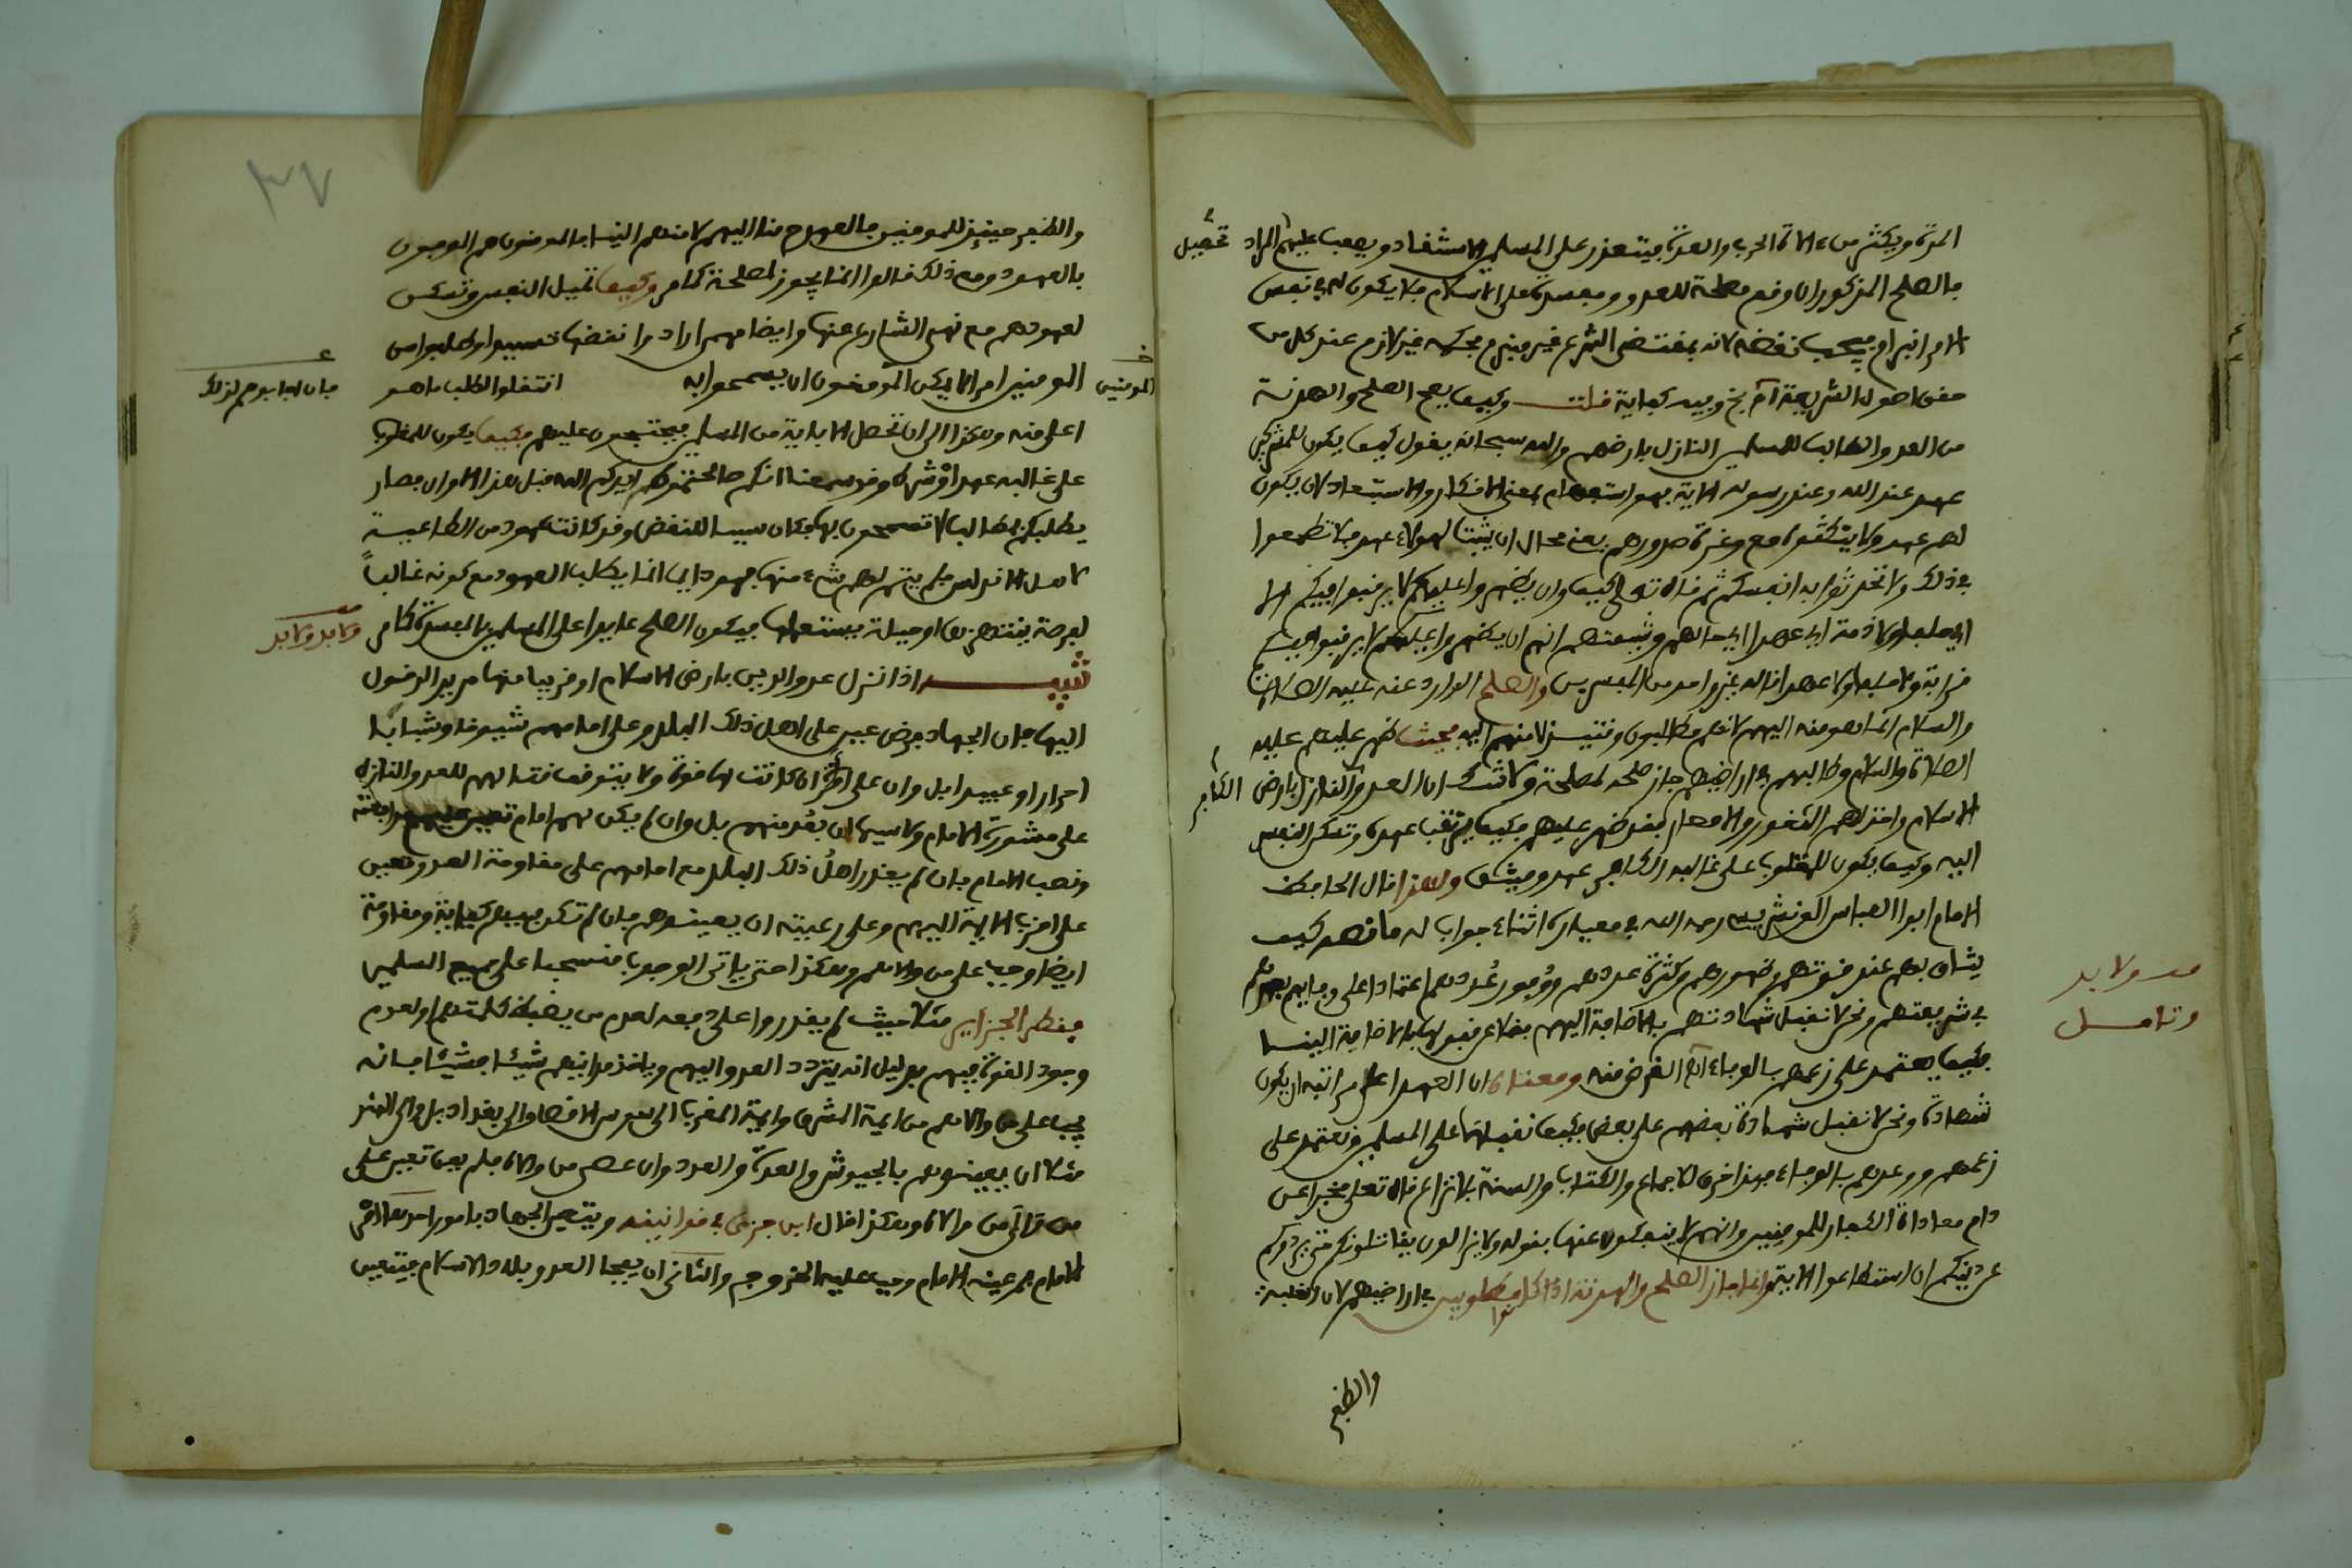 المدة ويكثر من آلات الحرب والعدة فيتعذر على المسلمين الاستنقاذ ويصعب عليهم المراد تحصيل
فالصلح المذكور ان وقع مصلحة للعدو ومفسدة على الاسلام فلا يكون له في نفس
الامر انبرام فيجب نقضه لانه بمقتضى الشرع غير منبرم فحكمه غير لازم عند كل من
حقق اصول الشريعة آه وفيه كفاية قلت وكيف يصح الصلح والهدنة
من العدو الطالب للمسلمين النازل بارضهم والله سبحانه يقول كيف يكون للمشركين
عهد عند الله وعند رسوله الآية فهو استفهام بمعنى الانكار والاستبعاد لان يكون
لهم عهد ولا ينكثوه مع وغرة صدورهم يعنى محال ان يثبت لهولاء عهد فلا تطمعوا
في ذلك ولا تحدثوا به انفسكم ثم قال تعالى كيف وان يظهروا عليكم لا يرقبوا فيكم الا
اي حلفا ولا ذمة اي عهدا اي حالهم وشيمتهم انهم ان يظهروا عليكم لا يرقبوا فيكم
قرابة ولا حلفا ولا عهدا قاله غير واحد من المفسرين والصلح الوارد عنه عليه الصلاة
والسلام انما هو منه اليهم لانهم مطالبون وقتئذ لا منهم اليه فحيث ظهر عليهم عليه
الصلاة والسلام وطالبهم في اراضيهم جاز صلحه لمصلحة ولا شك ان العدو النازل بارض الكافر
الاسلام واخذ لهم الثغور والامصار فقد ظهر عليهم فكيف يرتقب عهده وتسكن النفس
اليه وكيف يكون للمغلوب على غالبه الكافر عهد وميثق ولهذا قال الحافظ
الامام ابو العباس الونشريسي رحمه الله في معياره اثناء جواب له ما نصه كيف
يثاق بهم عند قوتهم وظهورهم وكثرة عددهم ووفور عُددهم اعتمادا على وفايهم بعهدهم
في شريعتهم ونحن لا نقبل شهادتهم بالاضافة اليهم فضلا عن قبولها بالاضافة الينا
فكيف يعتمد على زعمهم بالوفاء آه الغرض منه ومعناه ان العهد اعلى مراتبه ان يكون
شهادة ونحن لا نقبل شهادة بعضهم على بعض فكيف نقبلها على المسلمين ونعتمد على
زعمهم ووعدهم بالوفاء فهذا خرق للاجماع والكتاب والسنة بلا نزاع قال تعلى مخبرا عن
دام معاداة الكفار للمومنين وانهم لا ينفكون عنها بقوله ولا يزالون يقاتلونكم حتى يردوكم
عن دينكم ان استطاعوا الآية وانما جاز الصلح والهدنة اذا كانوا مطلوبين في اراضيهم لان الغلبة
والظفر
مد ولا بد
وتامل
والظفر حينئذ للمومنين فالعهد ح منا اليهم لا منهم الينا فالمومنون هم الموفون
بالعهود ومع ذلك قالوا انما يجوز لمصلحة كما مر وكيف تميل النفس وتسكن
لعهودهم مع نهي الشارع عنها وايضا مهما ارادوا نقضها طلبوا من
المومنين امرا لا يمكن المومنون ان يسمحوا به انتقلوا لطلب ما هو
المومنين
فان اجابوهم لذلك
اعلى منه وهكذا الى ان تحصل الاباية من المسلمين فيحتجون عليهم فكيف يكون للمغلوب
على غالبه عهد او شرط وقد سمعنا انكم صالحتموهم ايدكم الله قبل هذا الاوان فصار
يطلبكم بمطالب لا تسمحون بها فكان سببا للنقض وقد كانت عهود من الطاغية
لاهل الاندلس فلم يتم لهم شيء منها فهو دايما انما يطلب العهود مع كونه غالباً
لفرصة ينتهزها او حيلة يستعملها فيكون الصلح عايدا على المسلمين بالمفسدة كما مر
ولا بد ولا بد
تنبيه اذا نزل عدو الدين بارض الاسلام او قريبا منها مريد الدخول
اليها فان الجهاد فرض عين على اهل ذلك البلد وعلى امامهم شيوخا وشبانا
احرارا وعبيدا بل وان على امراة ان كانت لها قوة ولا يتوقف قتالهم للعدو النازل
على مشورة الامام ولا سيما ان بعُد منهم بل وان لم يكن لهم امام تعين عليهم مدافعته
ونصب الامام فان لم يقدر اهلُ ذلك البلد مع امامهم على مقاومة العدو تعين
على اقرب الايمة اليهم وعلى رعيته ان يعينوهم فان لم تكن فيهم كفاية ومقاومة
ايضا وجب على من والاهم وهكذا حتى ياتى الوجوب منسحبا على جميع المسلمين
فقطر الجزاير مثلا حيث لم يقدروا على دفعه لعدم من يضبط كلمتهم او لعدم
وجود القوة فيهم بدليل انه يتردد العدو اليهم وياخذ مداينهم شيئا فشيئا فانه
يجب على من والاهم من ايمة المشرق وايمة المغرب الى سوس الاقصا والى بغداد بل والى الهند
مثلا ان يعينوهم بالجيوش والعدة والعدد وان عصى من والاه فلم يعن تعين على
من والى من والاه وهكذا قال ابن جزى في قوانينه ويتعين الجهاد بامور احدها امر
الامام فمن عينه الامام وجب عليه الخروج والثاني ان يفجا العدو بلاد الاسلام فيتعين